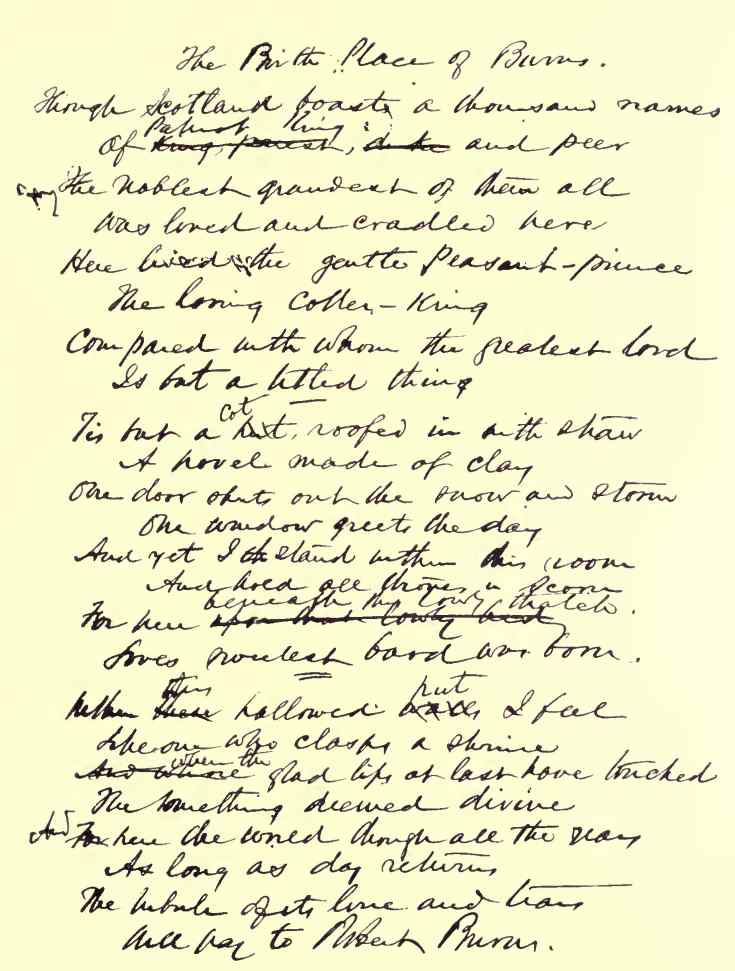 The Birth Place of Burns.
Though Scotland boasts a thousand names
Patriot King
Of King, priest, and peer
The noblest grandest of them all
Was loved and cradled here
Here lived the gentle Peasant-prince
The loving Cotter-King
Compared with whom the greatest lord
Is but a titled thing
cot
Tis but a hut, roofed in with straw
A hovel made of clay
One door shuts out the snow and storm
One window greets the day
And yet I stand within this room
And hold all thrones in scorn
beneath this lowly thatch.
For here upon that lowly bed
Loves sweetest bard was born.
this hut
Within these hallowed walls I feel
Like one who clasps a shrine
when the
And whose glad lips at last have touched
The something deemed divine
And
For here the world through all the years
As long as day returns
The tribute of its love and tears
Will pay to Robert Burns.